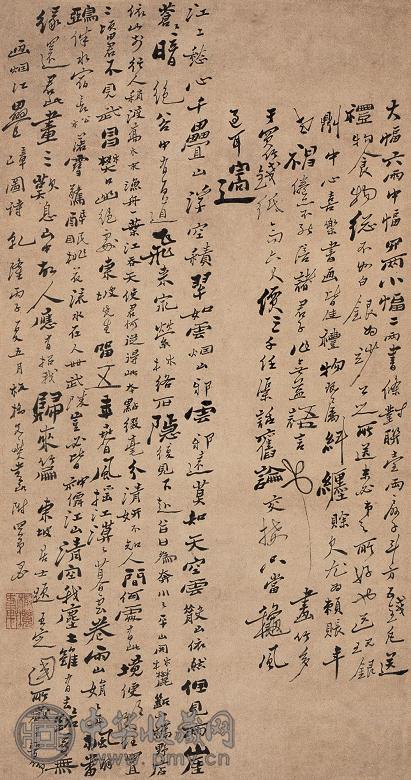 大幅六兩中幅四兩小幅二兩書條對聯壹兩扇子斗方五錢凡送
禮物食物總不如白銀為妙公之所送未必弟之所好也送現銀
則中心喜樂書畫皆佳禮物既屬糾纏賒欠尤為賴賬年
老神倦不能陪諸君子作無益語言也 畫竹多
于買竹錢紙高六尺價三千任渠話舊論交接只當秋風
過耳邊
江上愁心千疊山浮空積翠如雲烟山耶雲耶遠莫知天空雲散山依然但見兩崖
蒼蒼暗絕谷中有百道飛來泉縈林絡石隱復見下赴谷口為奔川川平山開林麓斷小橋野店
依山前行人稍渡喬木外漁舟一葉江吞天使君何從得此本點綴毫末分清妍不知人間何處有此境便欲往置
二頃田君不見武昌樊口幽絕處東坡先生留五年春風搖江天漠漠暮雲卷雨山娟娟丹楓翻
鴉伴水宿長松落雪驚醉眠桃花流水在人世武陵豈必皆神僊江山清空我塵土雖有去路尋無
緣還君此畫三歎息山中故人應有招我歸來篇 東坡居士題王定國所藏
畫烟江疊嶂圖詩 乾隆丙子夏五月板橋
中华收藏网